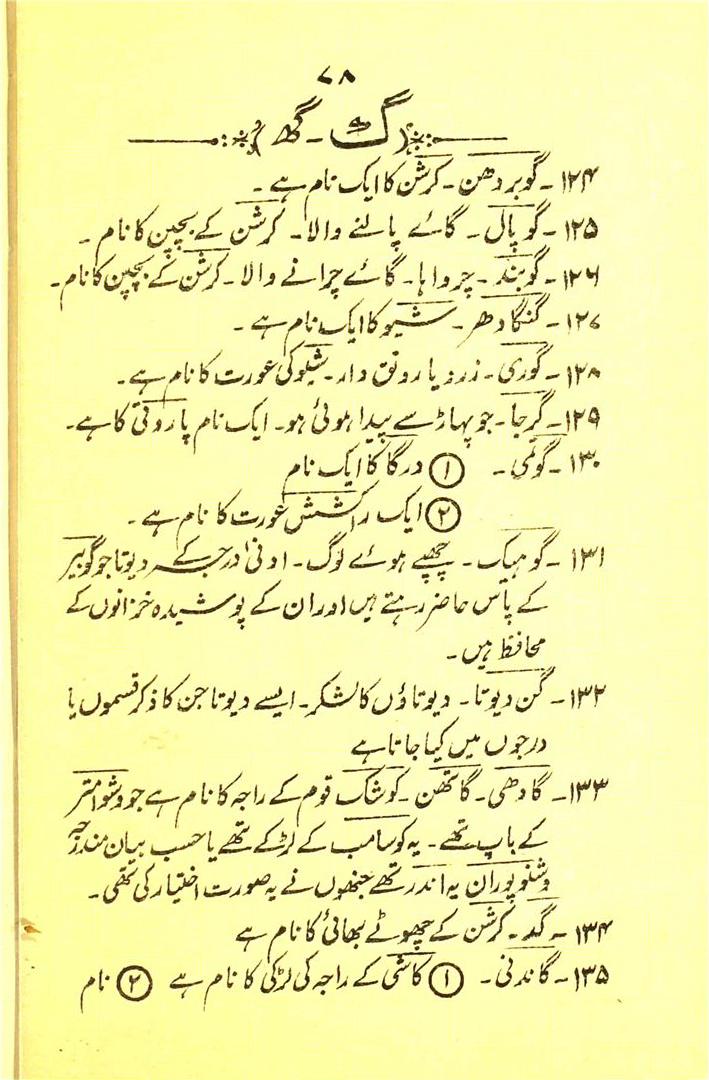 ۷۸
گ ۔ گھ
۱۲۴۔ گوبردھن ۔ کرشن کا ایک نام ہے ۔
۱۲۵۔ گوپال ۔ گائے پالنے والا ۔ کرشن کے بچپن کا نام ۔
۱۲۶۔ گوبند ۔ چرواہا ۔ گائے چرانے والا ۔ کرشن کے بچپن کا نام ۔
۱۲۷۔ گنگا دھر ۔ شیو کا ایک نام ہے ۔
۱۲۸۔ گوری ۔ زرد یا رونق دار ۔ شیو کی عورت کا نام ہے ۔
۱۲۹۔ گرجا ۔ جو پہاڑ سے پیدا ہوئی ہو ۔ ایک نام پاروتی کا ہے ۔
۱۳۰۔ گوتمی ۔ ① درگا کا ایک نام
② ایک راکشش عورت کا نام ہے ۔
۱۳۱۔ گوہیک ۔ چھپے ہوئے لوگ ۔ ادنیٰ درجے کے دیوتا جو گوبیر
کے پاس حاضر رہتے ہیں اور ان کے پوشیدہ خزانوں کے
محافظ ہیں ۔
۱۳۲۔ گن دیوتا ۔ دیوتاؤں کا لشکر ۔ ایسے دیوتا جن کا ذکر قسموں یا
درجوں میں کیا جاتا ہے
۱۳۳۔ گادھی ۔ گاتھن ۔ کوشک قوم کے راجہ کا نام ہے جو وشوامتر
کے باپ تھے ۔ یہ کوسامب کے لڑکے تھے یا حسب بیان مندرجہ
وشنو پوران یہ اندر تھے جنھوں نے یہ صورت اختیار کی تھی ۔
۱۳۴۔ گد ۔ کرشن کے چھوٹے بھائی کا نام ہے
۱۳۵۔ گاندنی ۔ ① کاشی کے راجہ کی لڑکی کا نام ہے ② نام